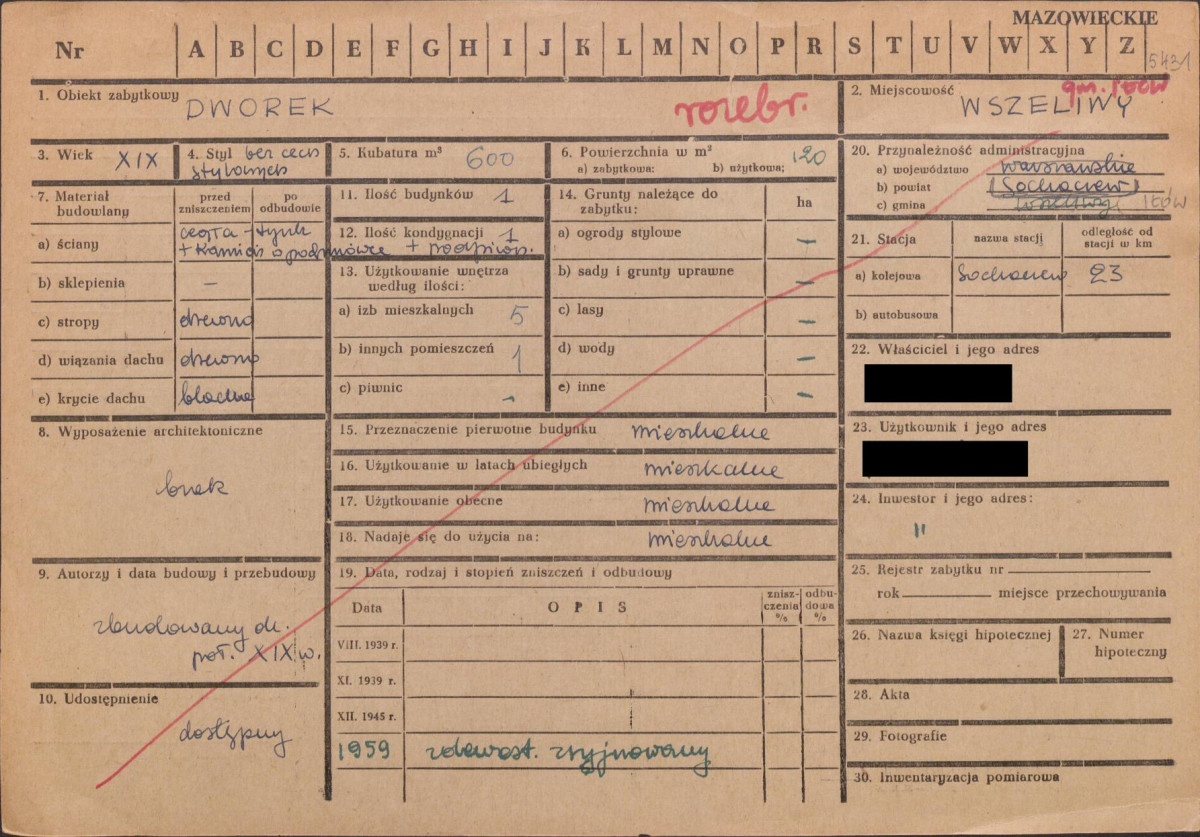 MAZOWIECKIE
Nr A B C D E F G H I J K L M N O P R S T U V W X Y Z
5431
1. Obiekt zabytkowy DWOREK rozebr.
2. Miejscowość WSZELIWY gm. Iłów
3. Wiek XIX
4. Styl bez cech stylowych
5. Kubatura m³ 600
6. Powierzchnia w m²
a) zabytkowa: b) użytkowa: 120
7. Materiał budowlany
przed zniszczeniem
po odbudowie
a) ściany cegła - tynk + kamień o podmurówce
b) sklepienia –
c) stropy drewno
d) wiązania dachu drewno
e) krycie dachu blacha
8. Wyposażenie architektoniczne
brak
9. Autorzy i data budowy i przebudowy
zbudowany dr. poł. XIX w.
10. Udostępnienie
dostępny
11. Ilość budynków 1
12. Ilość kondygnacji 1
13. Użytkowanie wnętrza według ilości:
a) izb mieszkalnych 5
b) innych pomieszczeń 1
c) piwnic -
14. Grunty należące do zabytku:
ha
a) ogrody stylowe –
b) sady i grunty uprawne –
c) lasy –
d) wody –
e) inne –
15. Przeznaczenie pierwotne budynku mieszkalne
16. Użytkowanie w latach ubiegłych mieszkalne
17. Użytkowanie obecne mieszkalne
18. Nadaje się do użycia na: mieszkalne
19. Data, rodzaj i stopień zniszczeń i odbudowy
Data
OPIS
zniszczenia %
odbudowa %
VIII. 1939 r.
XI. 1939 r.
XII. 1945 r.
1959 zdewast. zrujnowany
20. Przynależność administracyjna
a) województwo warszawskie
b) powiat (Sochaczew)
c) gmina Iłów
21. Stacja
nazwa stacji
odległość od stacji w km
a) kolejowa Sochaczew 23
b) autobusowa
22. Właściciel i jego adres
23. Użytkownik i jego adres
24. Inwestor i jego adres:
"
25. Rejestr zabytku nr
rok miejsce przechowywania
26. Nazwa księgi hipotecznej
27. Numer hipoteczny
28. Akta
29. Fotografie
30. Inwentaryzacja pomiarowa